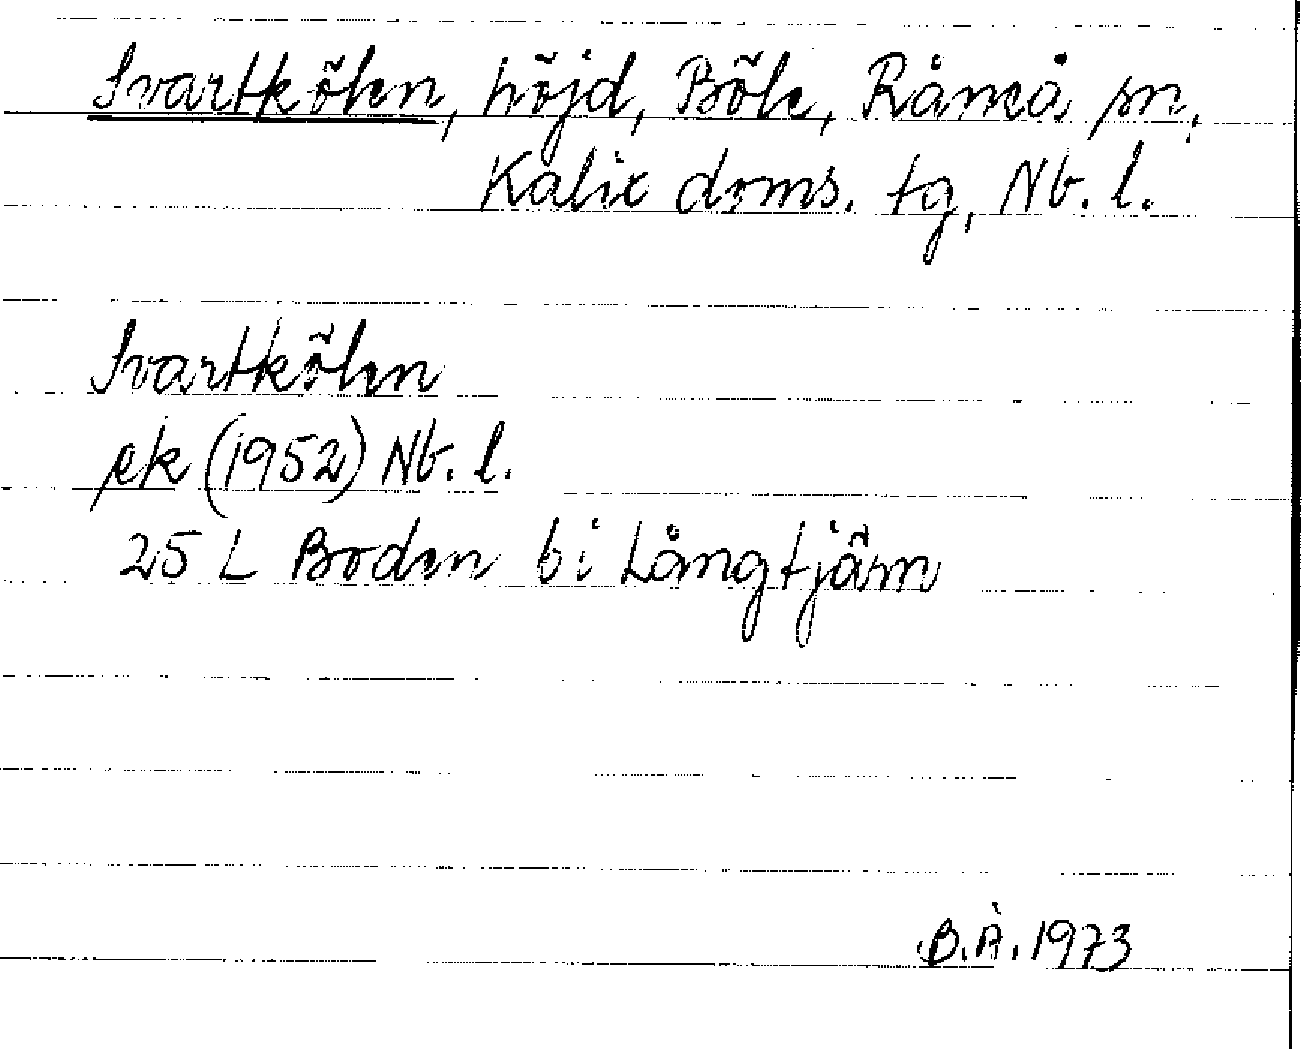 Svartkölen, höjd, Böle, Råneå sn,
Kalix doms. tg, Nb. l.
Svartkölen
ek (1952) Nb. l.
25 L Boden bi Långtjärn
B.Å. 1973